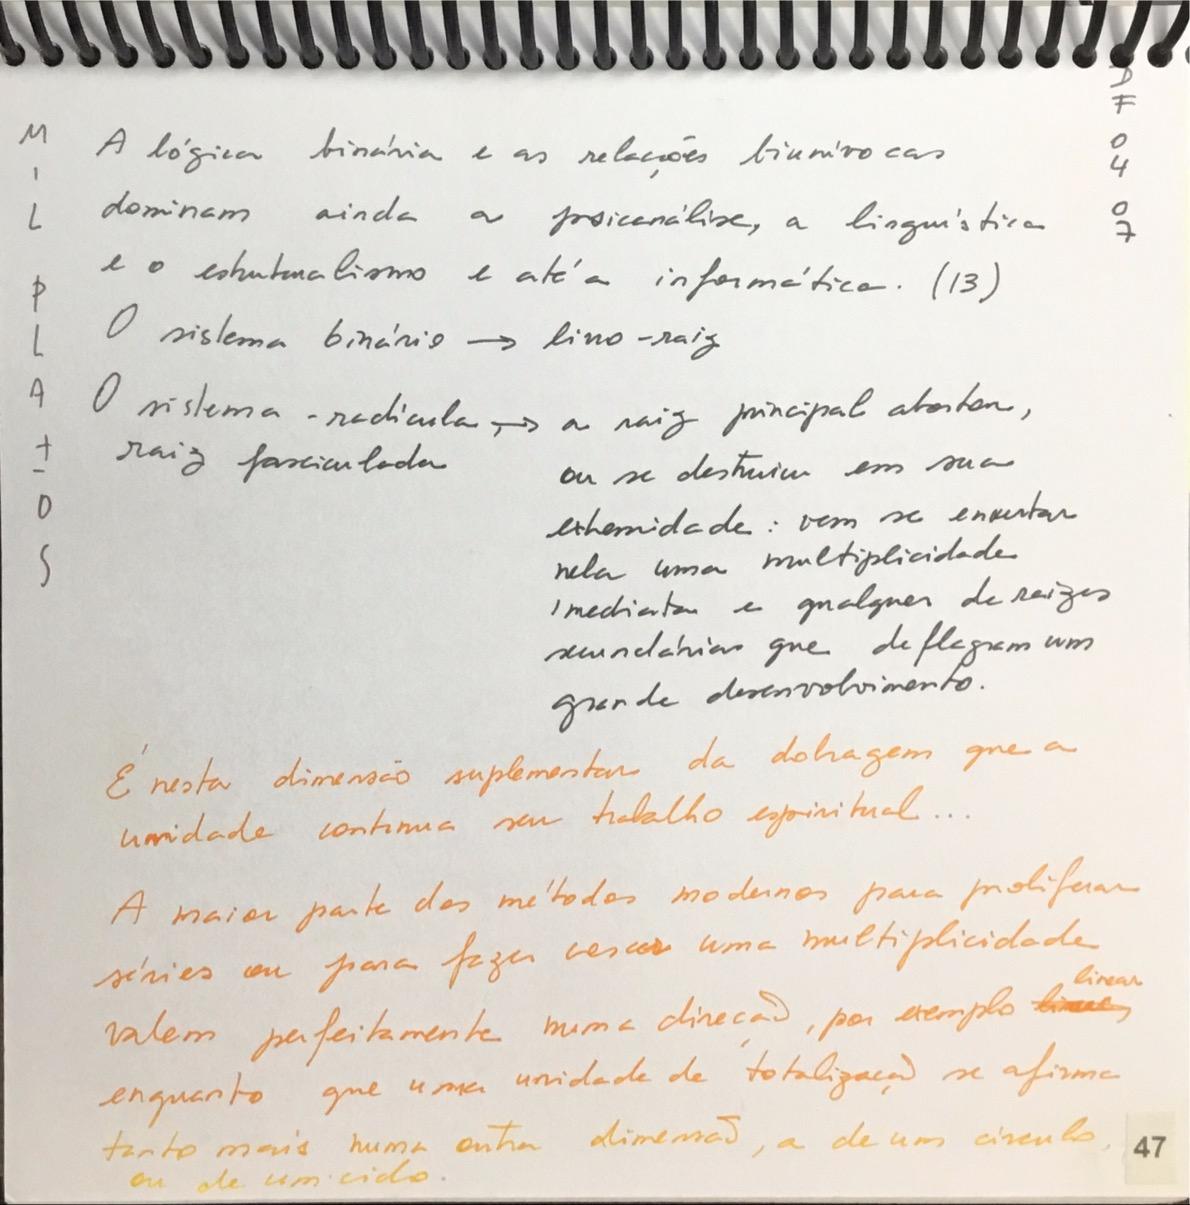 MIL PLATÔS
DF 04 07
A lógica binária e as relações biunívocas
dominam ainda a psicanálise, a linguística
e o estruturalismo e até a informática. (13)
O sistema binário → livro-raiz
O sistema-radícula → a raiz principal abortou,
raiz fasciculada
ou se destruiu em sua
extremidade: vem se enxertar
nela uma multiplicidade
imediata e qualquer de raízes
secundárias que deflagram um
grande desenvolvimento.
É nesta dimensão suplementar da dobragem que a
unidade continua seu trabalho espiritual...
A maior parte dos métodos modernos para proliferar
séries ou para fazer crescer uma multiplicidade
valem perfeitamente numa direção, por exemplo linear
enquanto que uma unidade de totalização se afirma
tanto mais numa outra dimensão, a de um círculo,
ou de um ciclo.
47